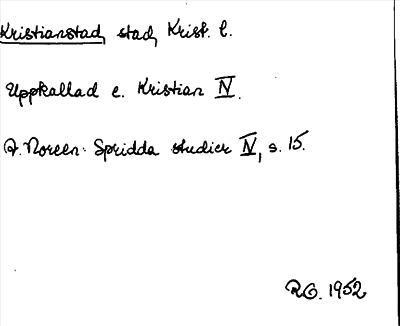 Kristianstad, stad, Krist. l.
Uppkallad e. Kristian IV.
A. Noreen: Spridda studier IV, s. 15.
R.G. 1952